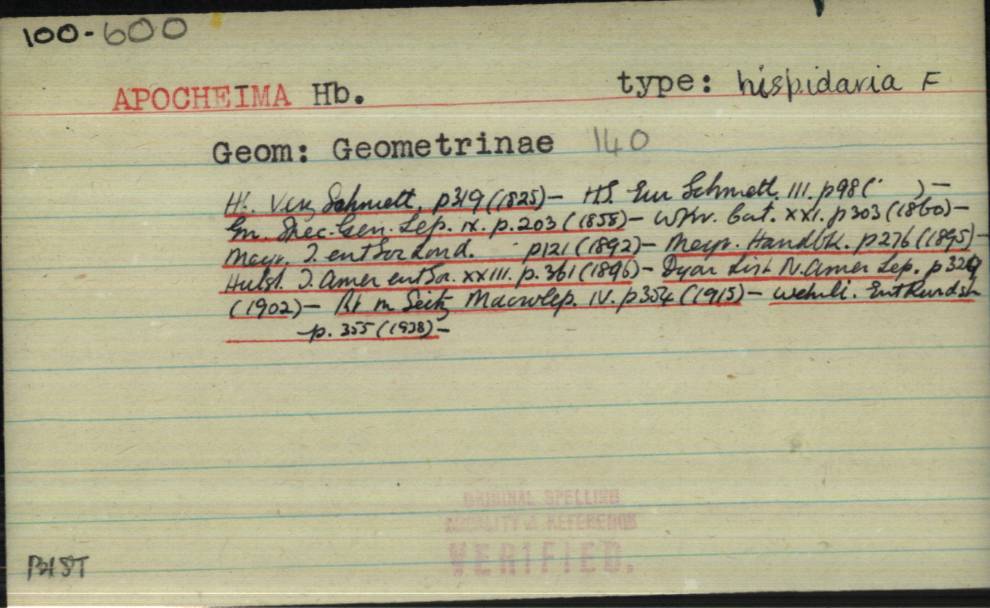 100-600
APOCHEIMA Hb. type: hispidaria F
Geom: Geometrinae 140
Hb. Verz Schmett. p319 (1825)— HS. Eur Schmett. III. p98 ( )—
Gn. Spec. Gen. Lep. ix. p.203 (1858)— Wkr. Cat. xxi. p303 (1860)—
Meyr. T. ent Soc Lond. p121 (1892)— Meyr. Handbk. p276 (1895)—
Hulst. T. Amer ent Soc. XXIII. p.361 (1896)— Dyar List N. Amer Lep. p
(1902)— Prt in Seitz Macrolep. IV. p354 (1915)— Wehrli. Ent Rundsch
p. 355 (1938)—
ORIGINAL SPELLING
REFERENCE
VERIFIED.